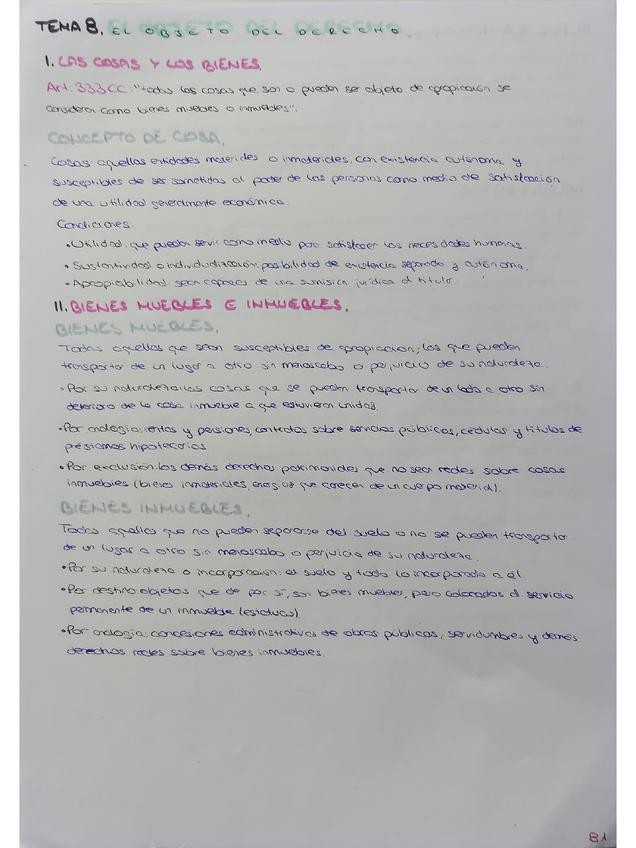 TEMA 8. EL OBJETO DEL DERECHO.
I. LAS COSAS Y LOS BIENES.
Art. 333 CC: "todas las cosas que son o pueden ser objeto de apropiación se
consideran como bienes muebles o inmuebles".
CONCEPTO DE COSA.
Cosas: aquellas entidades materiales o inmateriales, con existencia autónoma y
susceptibles de ser sometidas al poder de las personas como medio de satisfacción
de una utilidad generalmente económica.
Condiciones:
• Utilidad: que puedan servir como medio para satisfacer las necesidades humanas.
• Sustantividad o individualización: posibilidad de existencia separada y autónoma.
• Apropiabilidad: sean capaces de una sumisión jurídica al titular.
II. BIENES MUEBLES E INMUEBLES.
BIENES MUEBLES.
Todas aquellas que sean susceptibles de apropiación; las que pueden
transportar de un lugar a otro sin menoscabo o perjuicio de su naturaleza.
• Por su naturaleza: las cosas que se pueden transportar de un lado a otro sin
deterioro de la cosa inmueble a que estuvieran unidas.
• Por analogía: rentas y pensiones, contratos sobre servicios públicos, cédulas y títulos de
préstamos hipotecarios
• Por exclusión: los demás derechos patrimoniales que no sean reales sobre cosas
inmuebles (bienes inmateriales, energías que carecen de un cuerpo material).
BIENES INMUEBLES.
Todas aquellas que no pueden separarse del suelo o no se pueden transportar
de un lugar a otro sin menoscabo o perjuicio de su naturaleza.
• Por su naturaleza o incorporación: el suelo y todo lo incorporado a él.
• Por destino: objetos que de por sí, son bienes muebles, pero colocados al servicio
permanente de un inmueble (estatuas).
• Por analogía: concesiones administrativas de obras públicas, servidumbres y demás
derechos reales sobre bienes inmuebles.
81